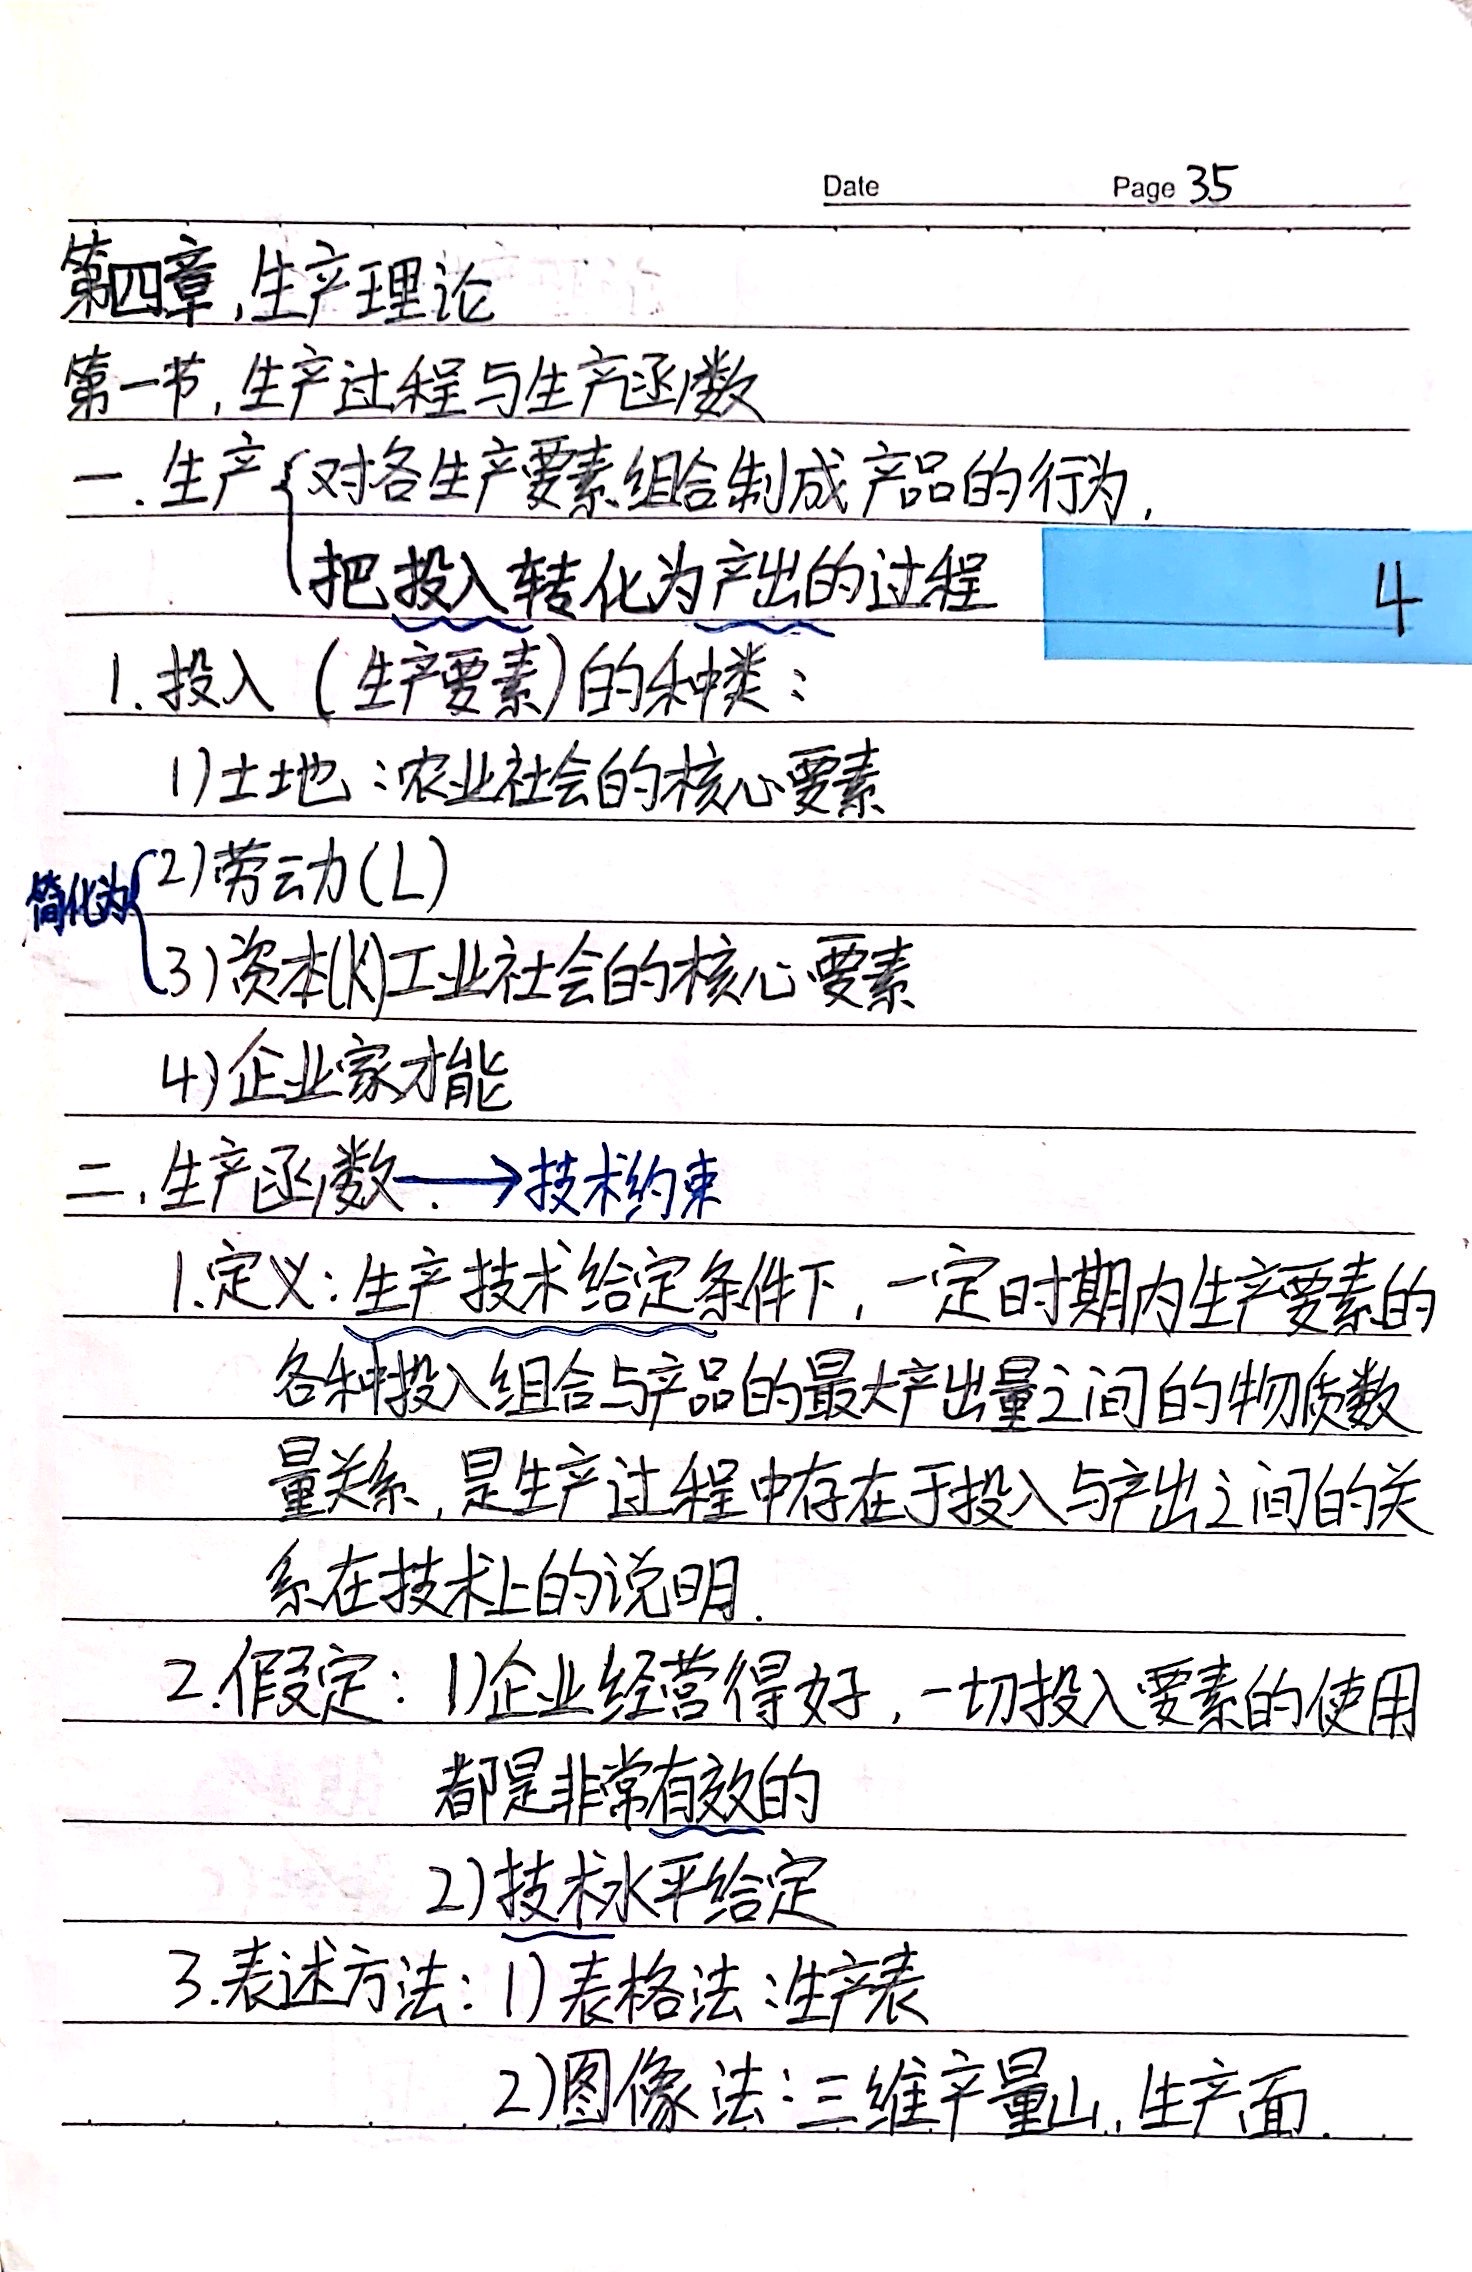 Date Page 35
第四章,生产理论
第一节,生产过程与生产函数
一.生产{对各生产要素组合制成产品的行为,
把投入转化为产出的过程
4
1.投入(生产要素)的种类:
1)土地:农业社会的核心要素
2)劳动力(L)
简化为
3)资本(K)工业社会的核心要素
4)企业家才能
二.生产函数.→技术约束
1.定义:生产技术给定条件下,一定时期内生产要素的
各种投入组合与产品的最大产出量之间的物质数
量关系,是生产过程中存在于投入与产出之间的关
系在技术上的说明.
2.假定:1)企业经营得好,一切投入要素的使用
都是非常有效的
2)技术水平给定
3.表述方法:1)表格法:生产表
2)图像法:三维产量山,生产面.